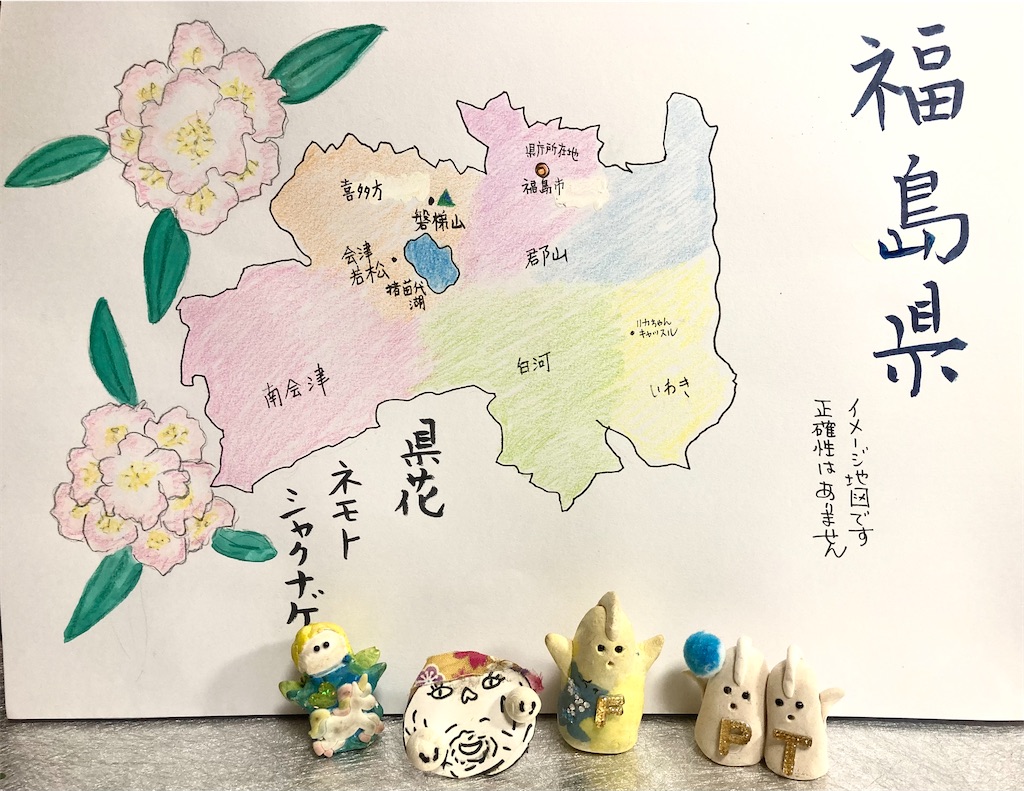 福島県
イメージ地図です
正確性はありません
県庁所在地
福島市
喜多方
磐梯山
会津
若松
猪苗代
湖
郡山
リカちゃん
キャッスル
白河
いわき
南会津
県花
ネモト
シャクナゲ
F
P
T